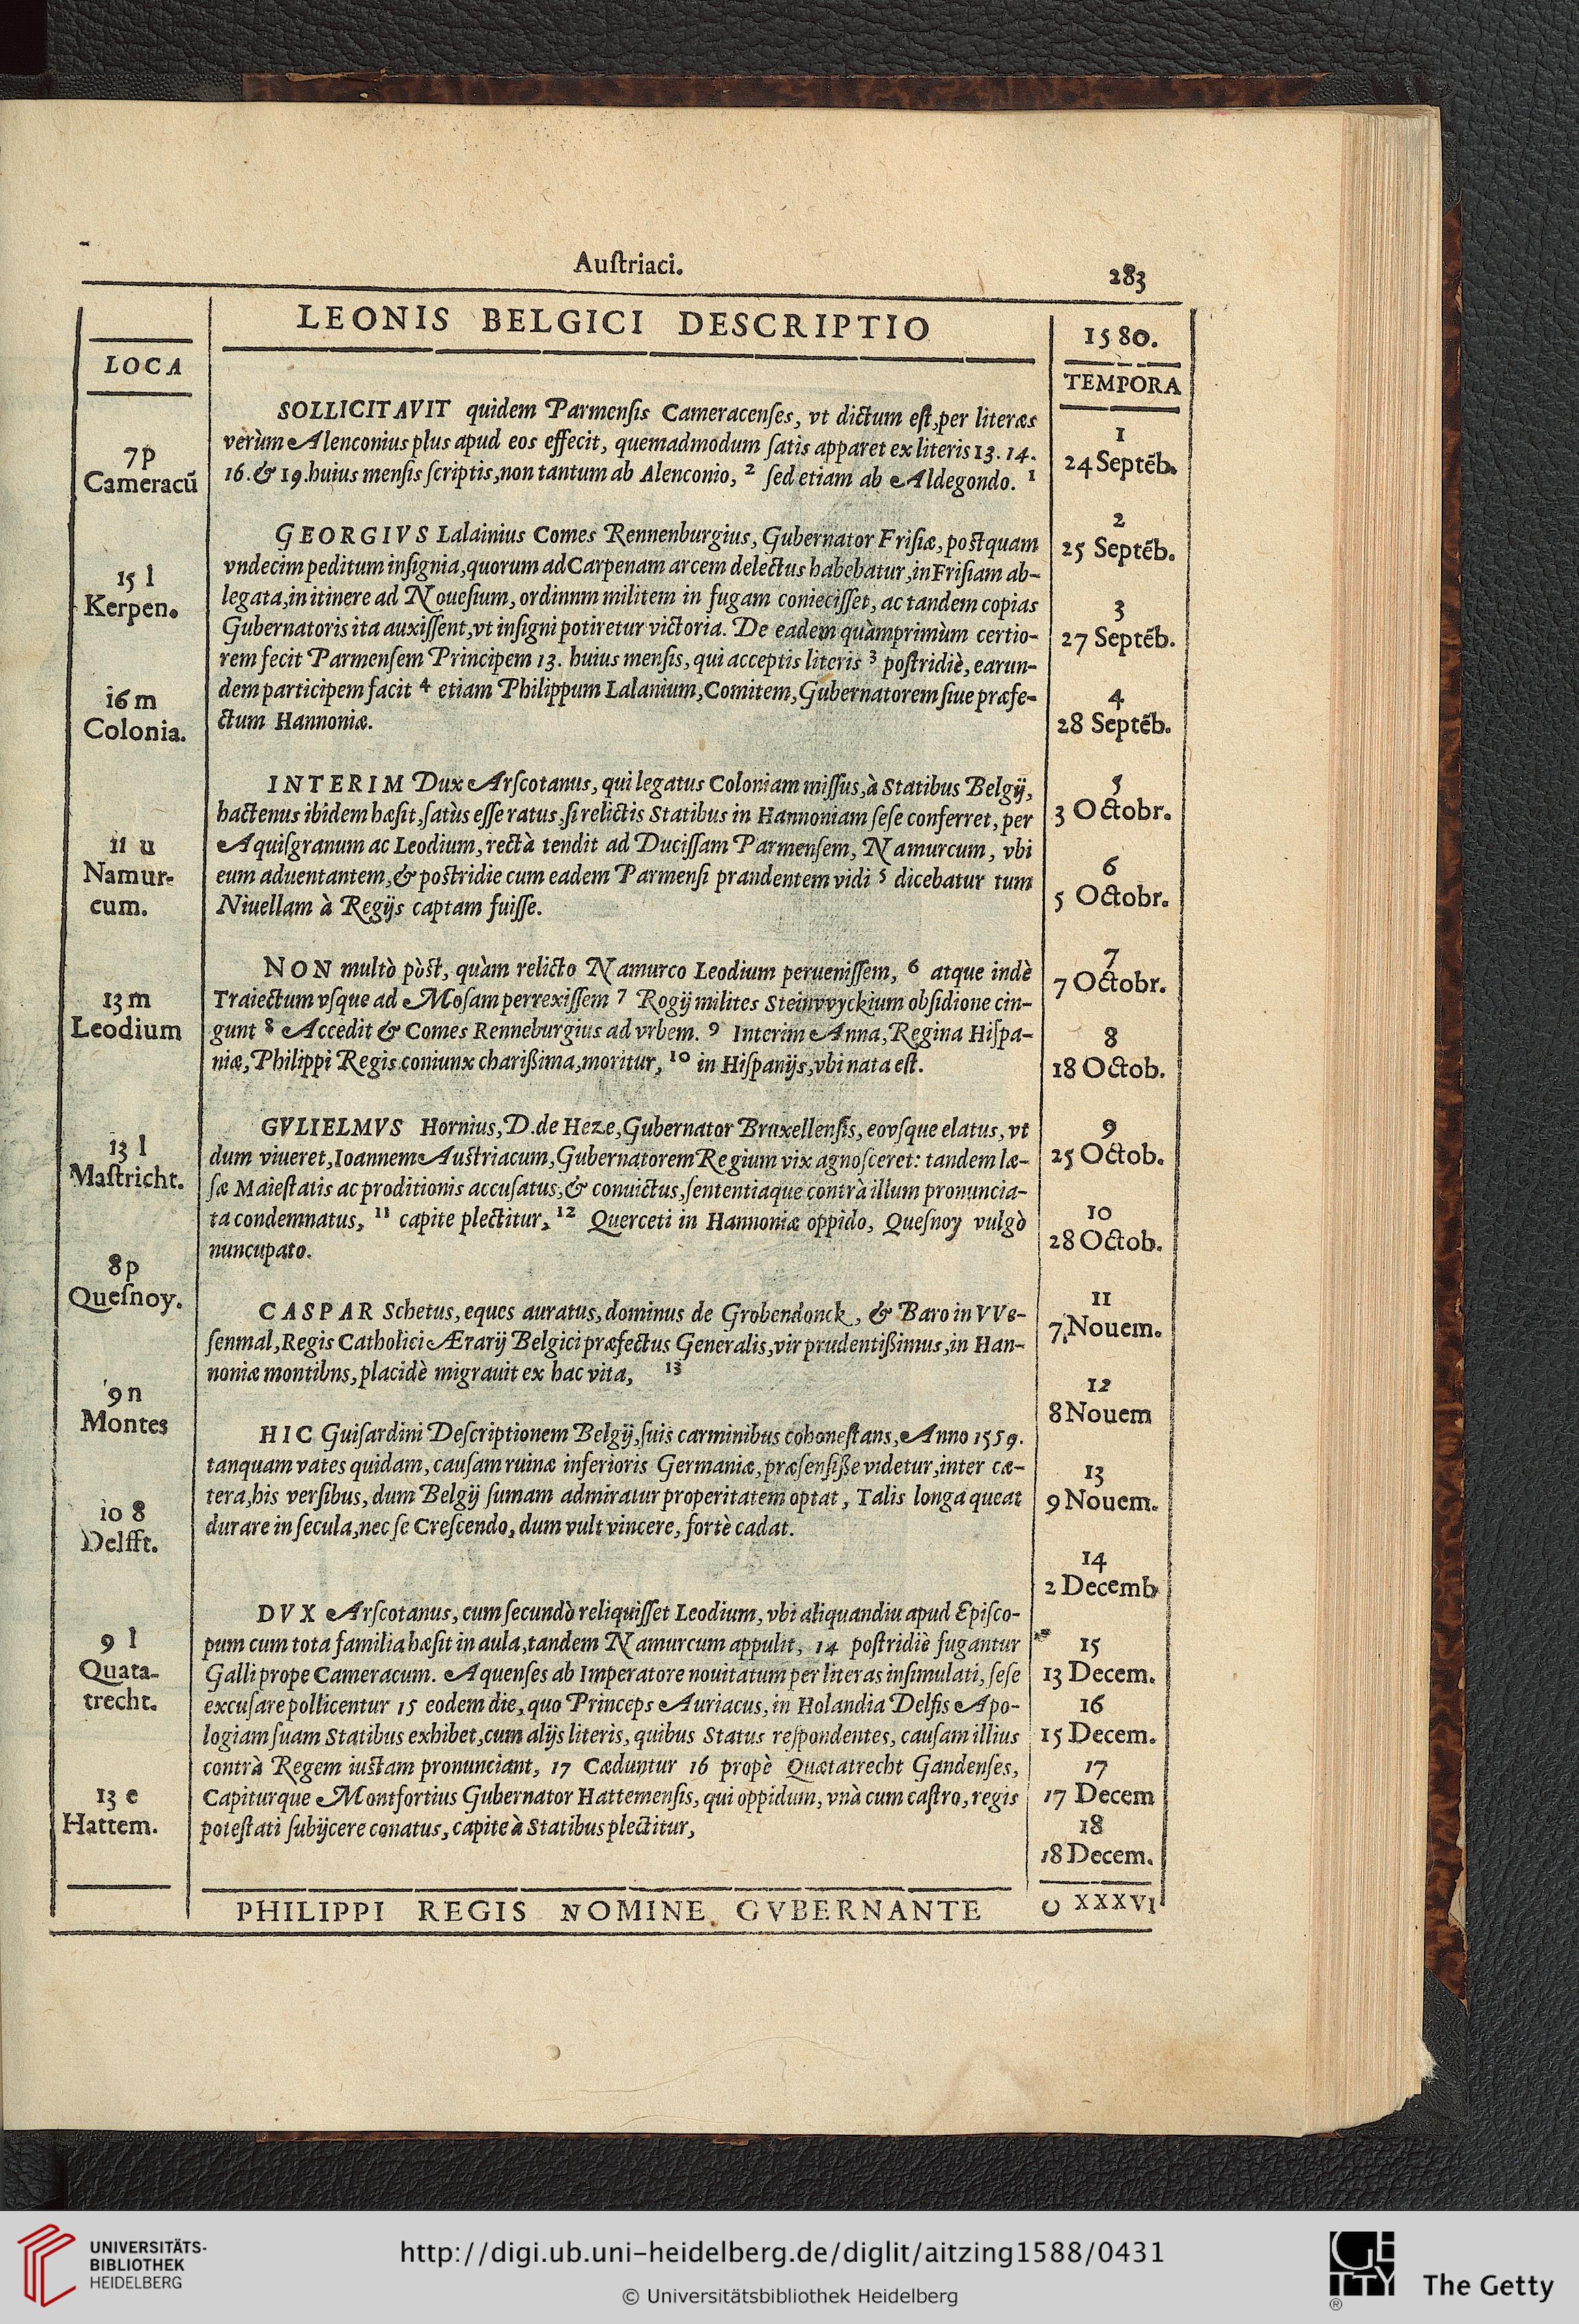 Auſtriaci.
283
LEONIS BELGICI DESCRIPTIO
LOCA
7p
Cameracũ
15 l
Kerpen.
16 m
Colonia.
11 u
Namur-
cum.
13 m
Leodium
13 l
Maſtricht.
8p
Queſnoy.
9 n
Montes
10 8
Delfft.
9 l
Quata-
trecht.
13 e
Hattem.
SOLLICITAVIT quidem Parmenſis Cameracenſes, vt dictum eſt, per literas
verùm Alenconius plus apud eos effecit, quemadmodum ſatis apparet ex literis 13. 14.
16. & 19. huius menſis ſcriptis, non tantum ab Alenconio, 2 ſed etiam ab Aldegondo. 1
GEORGIVS Lalainius Comes Rennenburgius, Gubernator Friſiæ, poſtquam
vndecim peditum inſignia, quorum ad Carpenam arcem delectus habebatur, in Friſiam ab-
legata, in itinere ad Noueſium, ordinnm militem in fugam conieciſſet, ac tandem copias
Gubernatoris ita auxiſſent, vt inſigni potiretur victoria. De eadem quàmprimùm certio-
rem fecit Parmenſem Principem 13. huius menſis, qui acceptis literis 3 poſtridiè, earun-
dem participem facit 4 etiam Philippum Lalanium, Comitem, Gubernatorem ſiue præfe-
ctum Hannoniæ.
INTERIM Dux Arſcotanus, qui legatus Coloniam miſſus, à Statibus Belgij,
hactenus ibidem hæſit, ſatùs eſſe ratus, ſi relictis Statibus in Hannoniam ſeſe conferret, per
Aquiſgranum ac Leodium, rectà tendit ad Duciſſam Parmenſem, Namurcum, vbi
eum aduentantem, & poſtridie cum eadem Parmenſi prandentem vidi 5 dicebatur tum
Niuellam à Regijs captam fuiſſe.
NON multò pòſt, quàm relicto Namurco Leodium perueniſſem, 6 atque indè
Traiectum vſque ad Moſam perrexiſſem 7 Rogij milites Steinvvyckium obſidione cin-
gunt 8 Accedit & Comes Renneburgius ad vrbem. 9 Interim Anna, Regina Hiſpa-
niæ, Philippi Regis coniunx charißima, moritur, 10 in Hiſpanijs, vbi nata eſt.
GVLIELMVS Hornius, D. de Heze, Gubernator Bruxellenſis, eovſque elatus, vt
dum viueret, Ioannem Auſtriacum, Gubernatorem Regium vix agnoſceret: tandem læ-
ſæ Maieſtatis ac proditionis accuſatus, & conuictus, ſententiaque contrà illum pronuncia-
ta condemnatus, 11 capite plectitur, 12 Querceti in Hannoniæ oppido, Queſnoy vulgò
nuncupato.
CASPAR Schetus, eques auratus, dominus de Grobendonck, & Baro in VVe-
ſenmal, Regis Catholici Ærarij Belgici præfectus Generalis, vir prudentißimus, in Han-
noniæ montibns, placidè migrauit ex hac vita, 13
HIC Guiſardini Deſcriptionem Belgij, ſuis carminibus cohoneſtans, Anno 1559.
tanquam vates quidam, cauſam ruinæ inferioris Germaniæ, præſenſiße videtur, inter cæ-
tera, his verſibus, dum Belgij ſumam admiratur properitatem optat, Talis longa queat
durare in ſecula, nec ſe Creſcendo, dum vult vincere, fortè cadat.
DVX Arſcotanus, cum ſecundò reliquiſſet Leodium, vbi aliquandiu apud Epiſco-
pum cum tota familia hæſit in aula, tandem Namurcum appulit, 14 poſtridiè fugantur
Galli prope Cameracum. Aquenſes ab Imperatore nouitatum per literas inſimulati, ſeſe
excuſare pollicentur 15 eodem die, quo Princeps Auriacus, in Holandia Delfis Apo-
logiam ſuam Statibus exhibet, cum alijs literis, quibus Status reſpondentes, cauſam illius
contrà Regem iuſtam pronunciant, 17 Cæduntur 16 propè Quætatrecht Gandenſes,
Capiturque Montfortius Gubernator Hattemenſis, qui oppidum, vnà cum caſtro, regis
poteſtati ſubijcere conatus, capite à Statibus plectitur,
1580.
TEMPORA
1
24 Septẽb.
2
25 Septẽb.
3
27 Septẽb.
4
28 Septẽb.
5
3 Octobr.
6
5 Octobr.
7
7 Octobr.
8
18 Octob.
9
25 Octob.
10
28 Octob.
11
7 Nouem.
12
8 Nouem
13
9 Nouem.
14
2 Decemb
15
13 Decem.
16
15 Decem.
17
17 Decem
18
18 Decem.
PHILIPPI REGIS NOMINE GVBERNANTE
XXXVI
UNIVERSITÄTS-
BIBLIOTHEK
HEIDELBERG
http://digi.ub.uni-heidelberg.de/diglit/aitzing1588/0431
© Universitätsbibliothek Heidelberg
GETTY
®
The Getty